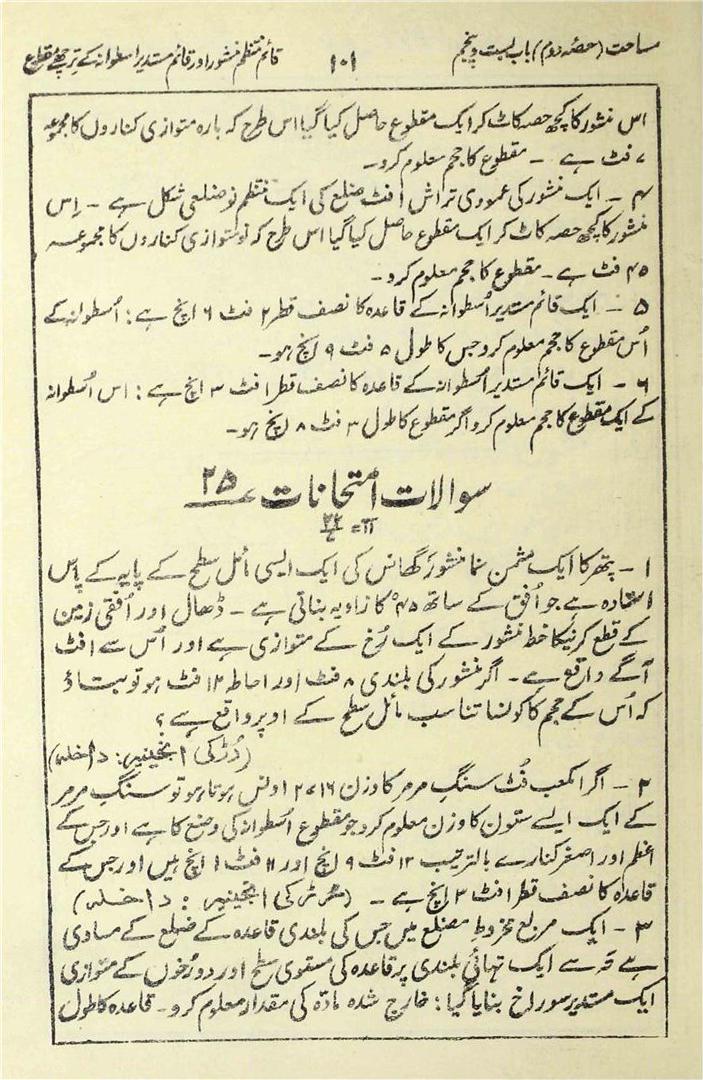 مساحت (حصہ دوم) باب بست و پنجم
۱۰۱
قائم منتظم منشور اور قائم مستدیر اسطوانہ کے ترچھے مقطوع
اس منشور کا کچھ حصہ کاٹ کر ایک مقطوع حاصل کیا گیا اس طرح کہ بارہ متوازی کناروں کا مجموعہ
۷ فٹ ہے ۔ مقطوع کا حجم معلوم کرو۔
۴ ۔ ایک منشور کی عمودی تراش ۱ فٹ ضلع کی ایک منتظم نو ضلعی شکل ہے ۔ اِس
منشور کا کچھ حصہ کاٹ کر ایک مقطوع حاصل کیا گیا اس طرح کہ نو متوازی کناروں کا مجموعہ
۴۵ فٹ ہے ۔ مقطوع کا حجم معلوم کرو۔
۵ ۔ ایک قائم مستدیر اُسطوانہ کے قاعدہ کا نصف قطر ۲ فٹ ۶ اِنچ ہے : اُسطوانہ کے
اُس مقطوع کا حجم معلوم کرو جس کا طول ۵ فٹ ۹ اِنچ ہو۔
۶ ۔ ایک قائم مستدیر اُسطوانہ کے قاعدہ کا نصف قطر ۱ فٹ ۳ اِنچ ہے : اس اُسطوانہ
کے ایک مقطوع کا حجم معلوم کرو اگر مقطوع کا طول ۳ فٹ ۸ اِنچ ہو۔
سوالات امتحانات ۲۵
π = ۲۲/۷
۱ ۔ پتھر کا ایک مثمن نما منشور گھانس کی ایک ایسی مائل سطح کے پایہ کے پاس
استادہ ہے جو اُفق کے ساتھ ۴۵° کا زاویہ بناتی ہے ۔ ڈھال اور اُفقی زمین
کے قطع کرنیکا خط منشور کے ایک رُخ کے متوازی ہے اور اُس سے ۱ فٹ
آگے واقع ہے ۔ اگر منشور کی بلندی ۸ فٹ اور احاطہ ۱۲ فٹ ہو تو بتاؤ
کہ اُس کے حجم کا کونسا تناسب مائل سطح کے اوپر واقع ہے ؟
(رُڑکی انجینیر : داخلہ)
۲ ۔ اگر ۱ مکعب فُٹ سنگِ مرمر کا وزن ۲۷۱۶ اونس ہوتا ہو تو سنگِ مرمر
کے ایک ایسے ستون کا وزن معلوم کرو جو مقطوع اُسطوانہ کی وضع کا ہے اور جس کے
اعظم اور اصغر کنارے بالترتیب ۱۲ فٹ ۹ اِنچ اور ۱۱ فٹ ۱ اِنچ ہیں اور جس کے
قاعدہ کا نصف قطر ۱ فٹ ۳ اِنچ ہے ۔ (رُڑکی انجینیر : داخلہ)
۳ ۔ ایک مربع مخروطِ مضلع میں جس کی بلندی قاعدہ کے ضلع کے مساوی
ہے قہ سے ایک تہائی بلندی پر قاعدہ کی مستوی سطح اور دو رُخوں کے متوازی
ایک مستدیر سوراخ بنایا گیا : خارج شدہ مادّہ کی مقدار معلوم کرو۔ قاعدہ کا طول